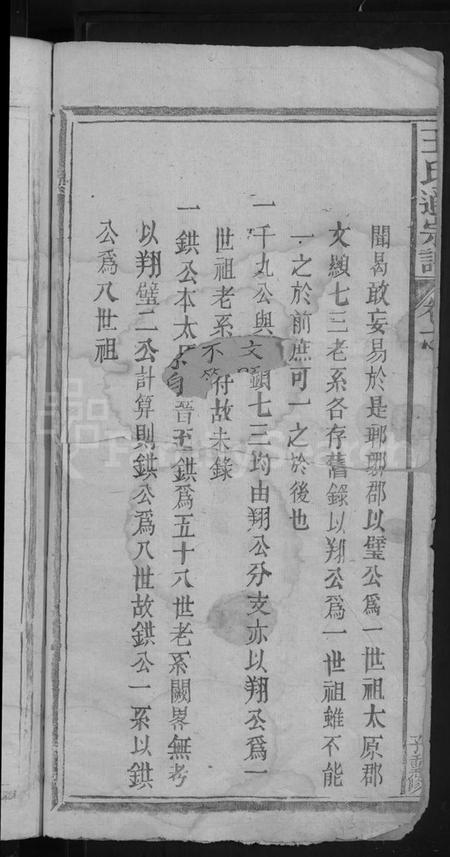 王氏通宗譜
聞曷敢妄易於是郰瑯郡以璧公爲一世祖太原郡
文纐七三老系各存舊錄以翔公爲一世祖雖不能
一之於前庶可一之於後也
一千九公與文顕七三均由翔公分支亦以翔公爲一
世祖老系不符故未錄
一鉷公本太系自晉至鉷爲五十八世老系闕畧無考
以翔璧二公計算則鉷公爲八世故鉷公一系以鉷
公爲八世祖